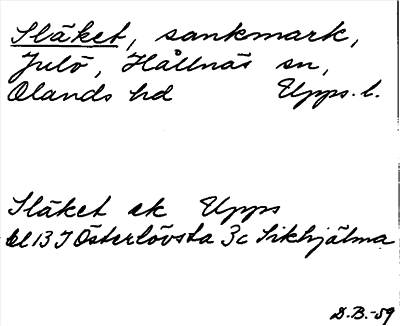 Släket, sankmark,
Julö, Hållnäs sn,
Olands hd Upps. l.
Släket ek Upps
bl 13 J Österlövsta 3c Sikhjälma
D.B.-59